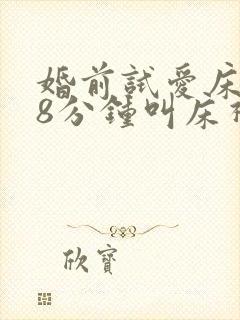 婚前試愛床
8分鍾叫床
欣寶